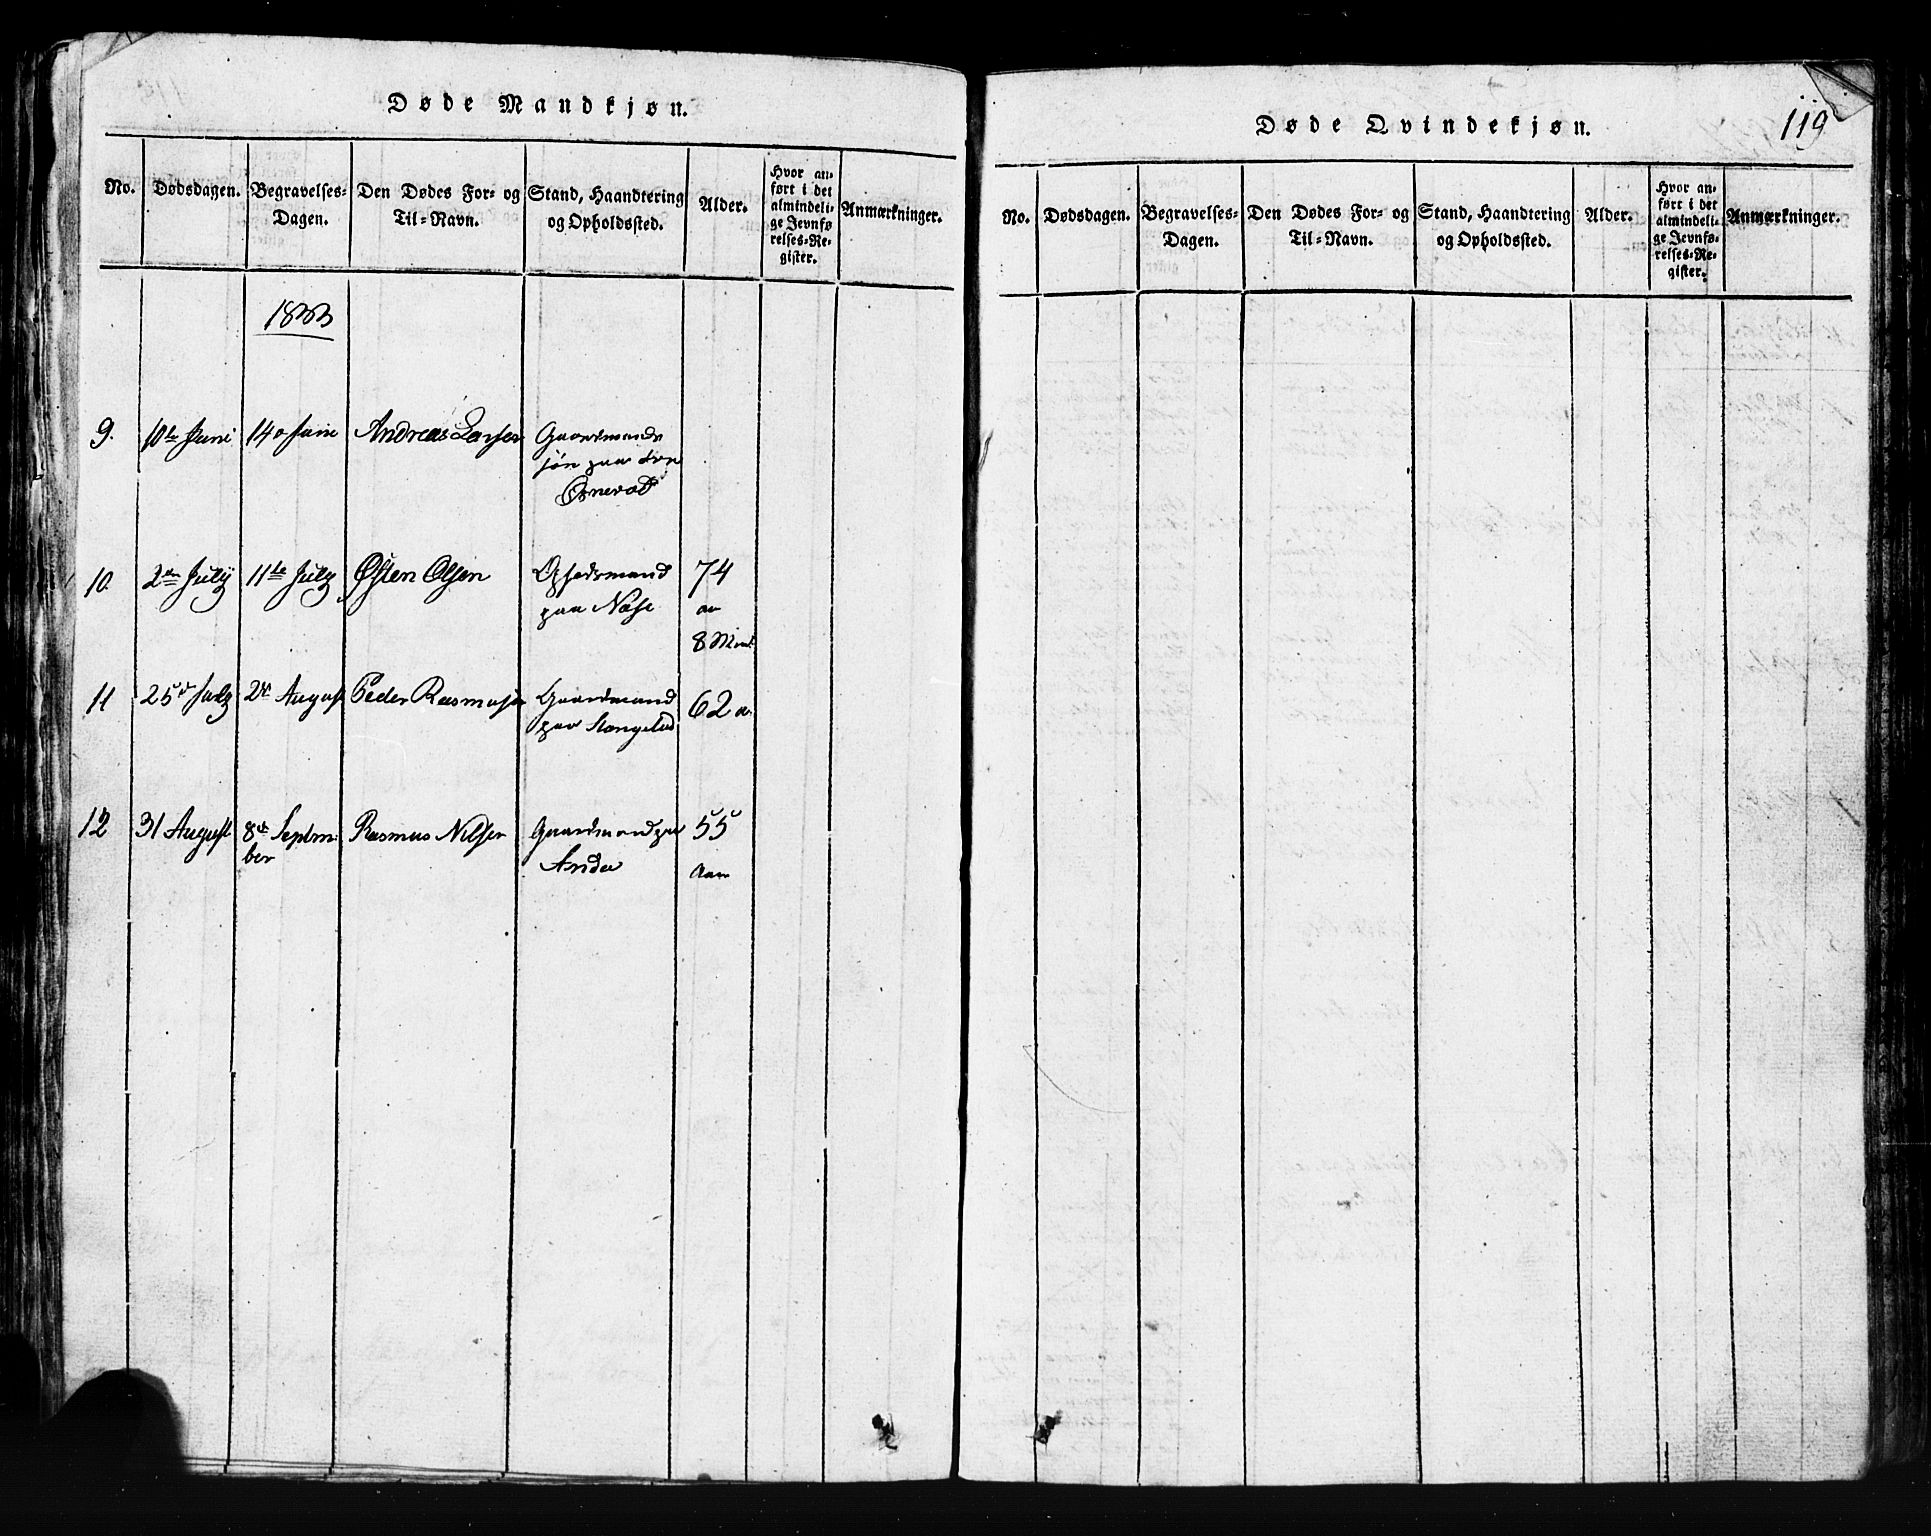 Døde Mandkjøn.
No. Dødsdagen. Begravelses-Dagen. Den Dødes For- og Til-Navn. Stand, Haandtering og Opholdssted. Alder. Hvor anført i det almindelige Jevnførelses-Register. Anmærkninger.
1833
9. 10de Juni 14 Juni Andreas Larsen Gaardmands
søn paa
10. 2den July 11te July Østen Olsen Opsidsmand 74
paa Næse
8 Maan
11 25 July 2den August Peder Rasmusen Gaardmand 62
paa Stangelad
12 31 August 8de Septem Rasmus Nilsen Gaardmand paa 55
ber Anda Aar
Døde Qvindekjøn.
119
No. Dødsdagen. Begravelses-Dagen. Den Dødes For- og Til-Navn. Stand, Haandtering og Opholdssted. Alder. Hvor anført i det almindelige Jevnførelses-Register. Anmærkninger.